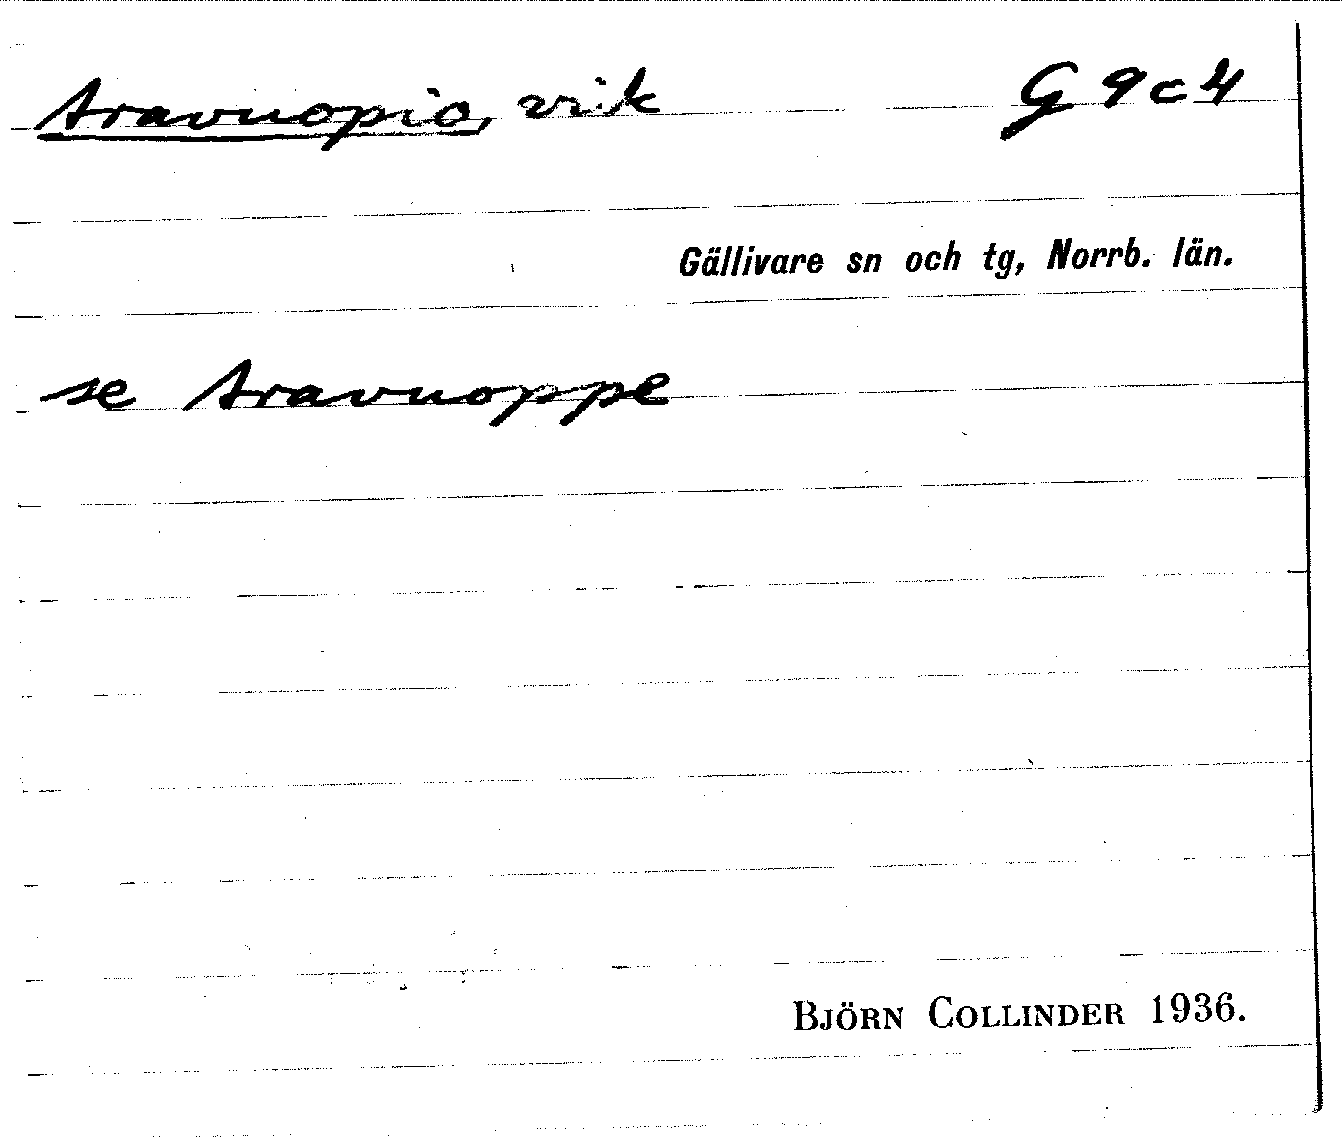 Aravuopio, vik G 9 c 4
Gällivare sn och tg, Norrb. län.
se Aravuoppe
BJÖRN COLLINDER 1936.